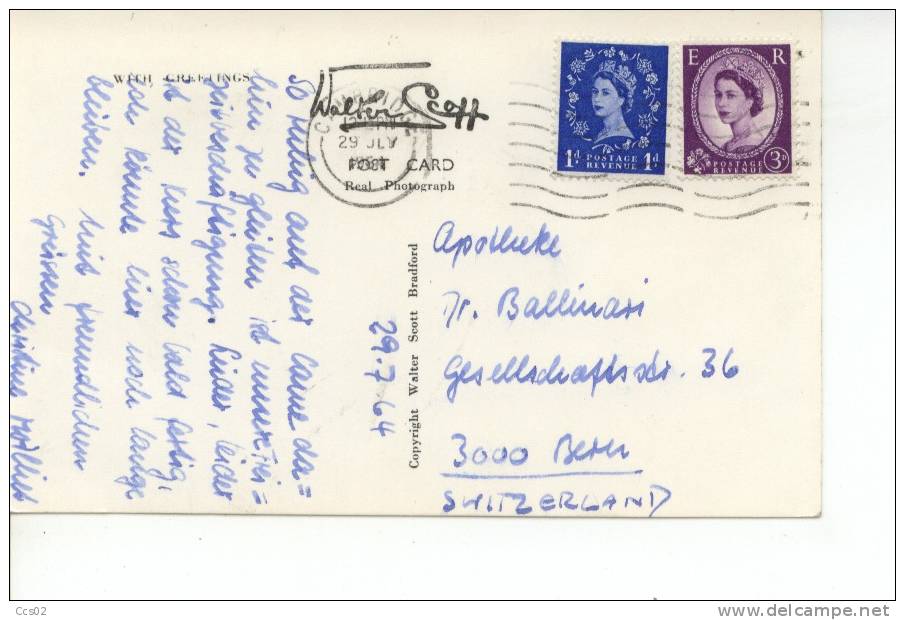 WITH GREETINGS
Walter Scott
POST CARD
Real Photograph
CAMBRIDGE
29 JLY
E R
1D POSTAGE REVENUE 1D
POSTAGE REVENUE 3D
So ruhig auf der Came da=
hin zu gleiten ist unsere Frei=
zeitbeschäftigung. Leider, leider
ist der Kurs schon bald fertig,
ich könnte hier noch lange
bleiben.
Mit freundlichen
Grüssen
Christine
29.7.64
Copyright Walter Scott Bradford
Apotheke
Dr. Ballinari
Gesellschaftsstr. 36
3000 Bern
SWITZERLAND
Ccs02
delcampe.net